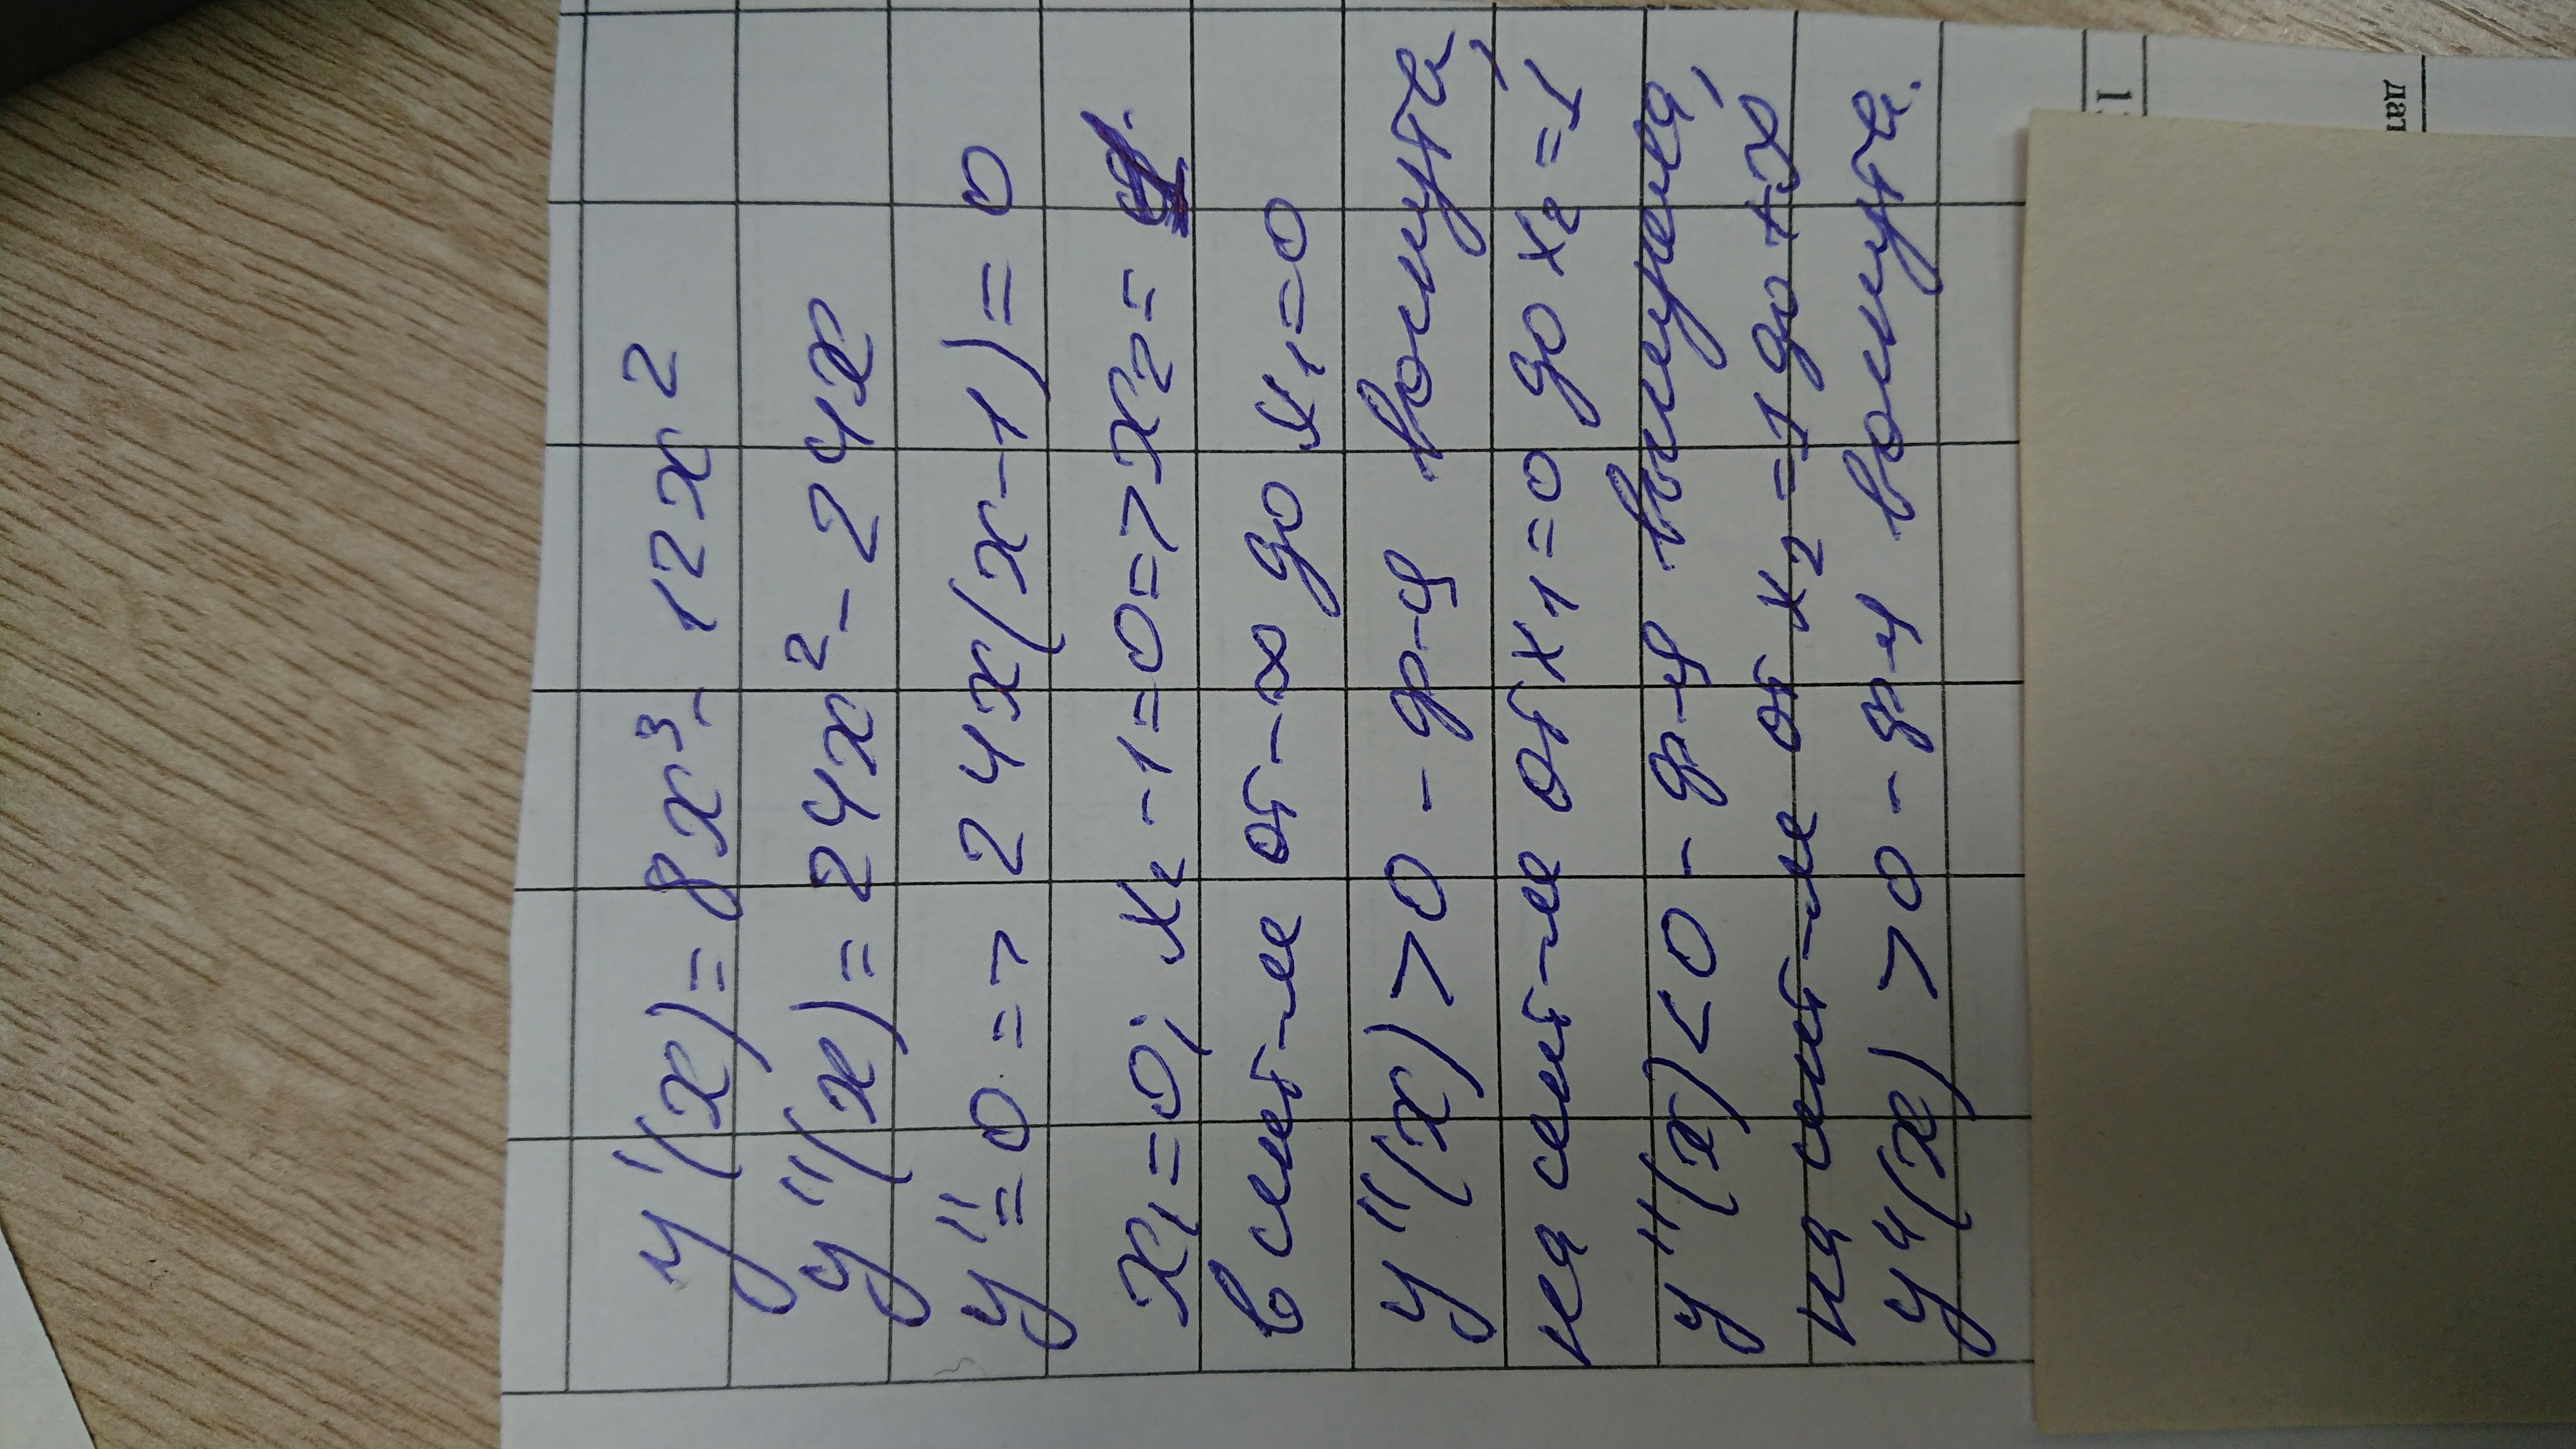 y'(x) = 8x³ - 12x²
y''(x) = 24x² - 24x
y'' = 0 => 24x(x-1) = 0
x₁ = 0; x₂ - 1 = 0 => x₂ =
в сист-ме от -∞ до x₁ = 0
y''(x) > 0 - ф-я вогнута,
на сист-ме от x₁ = 0 до x₂ = 1
y''(x) < 0 - ф-я выпуклая,
на сист-ме от x₂ = 1 до +∞
y''(x) > 0 - ф-я вогнута.
дат
1